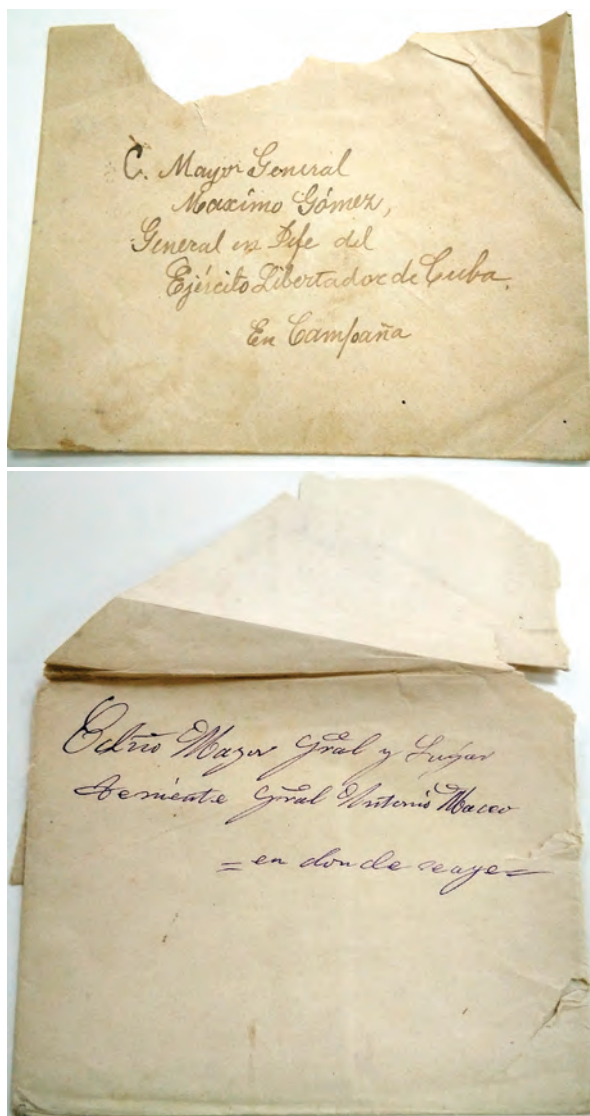 C. Mayor General
Maximo Gómez,
General en Jefe del
Ejército Libertador de Cuba.
En Campaña
Mayor Gral y Lugar
teniente Gral Antonio Maceo
= en donde se aye =